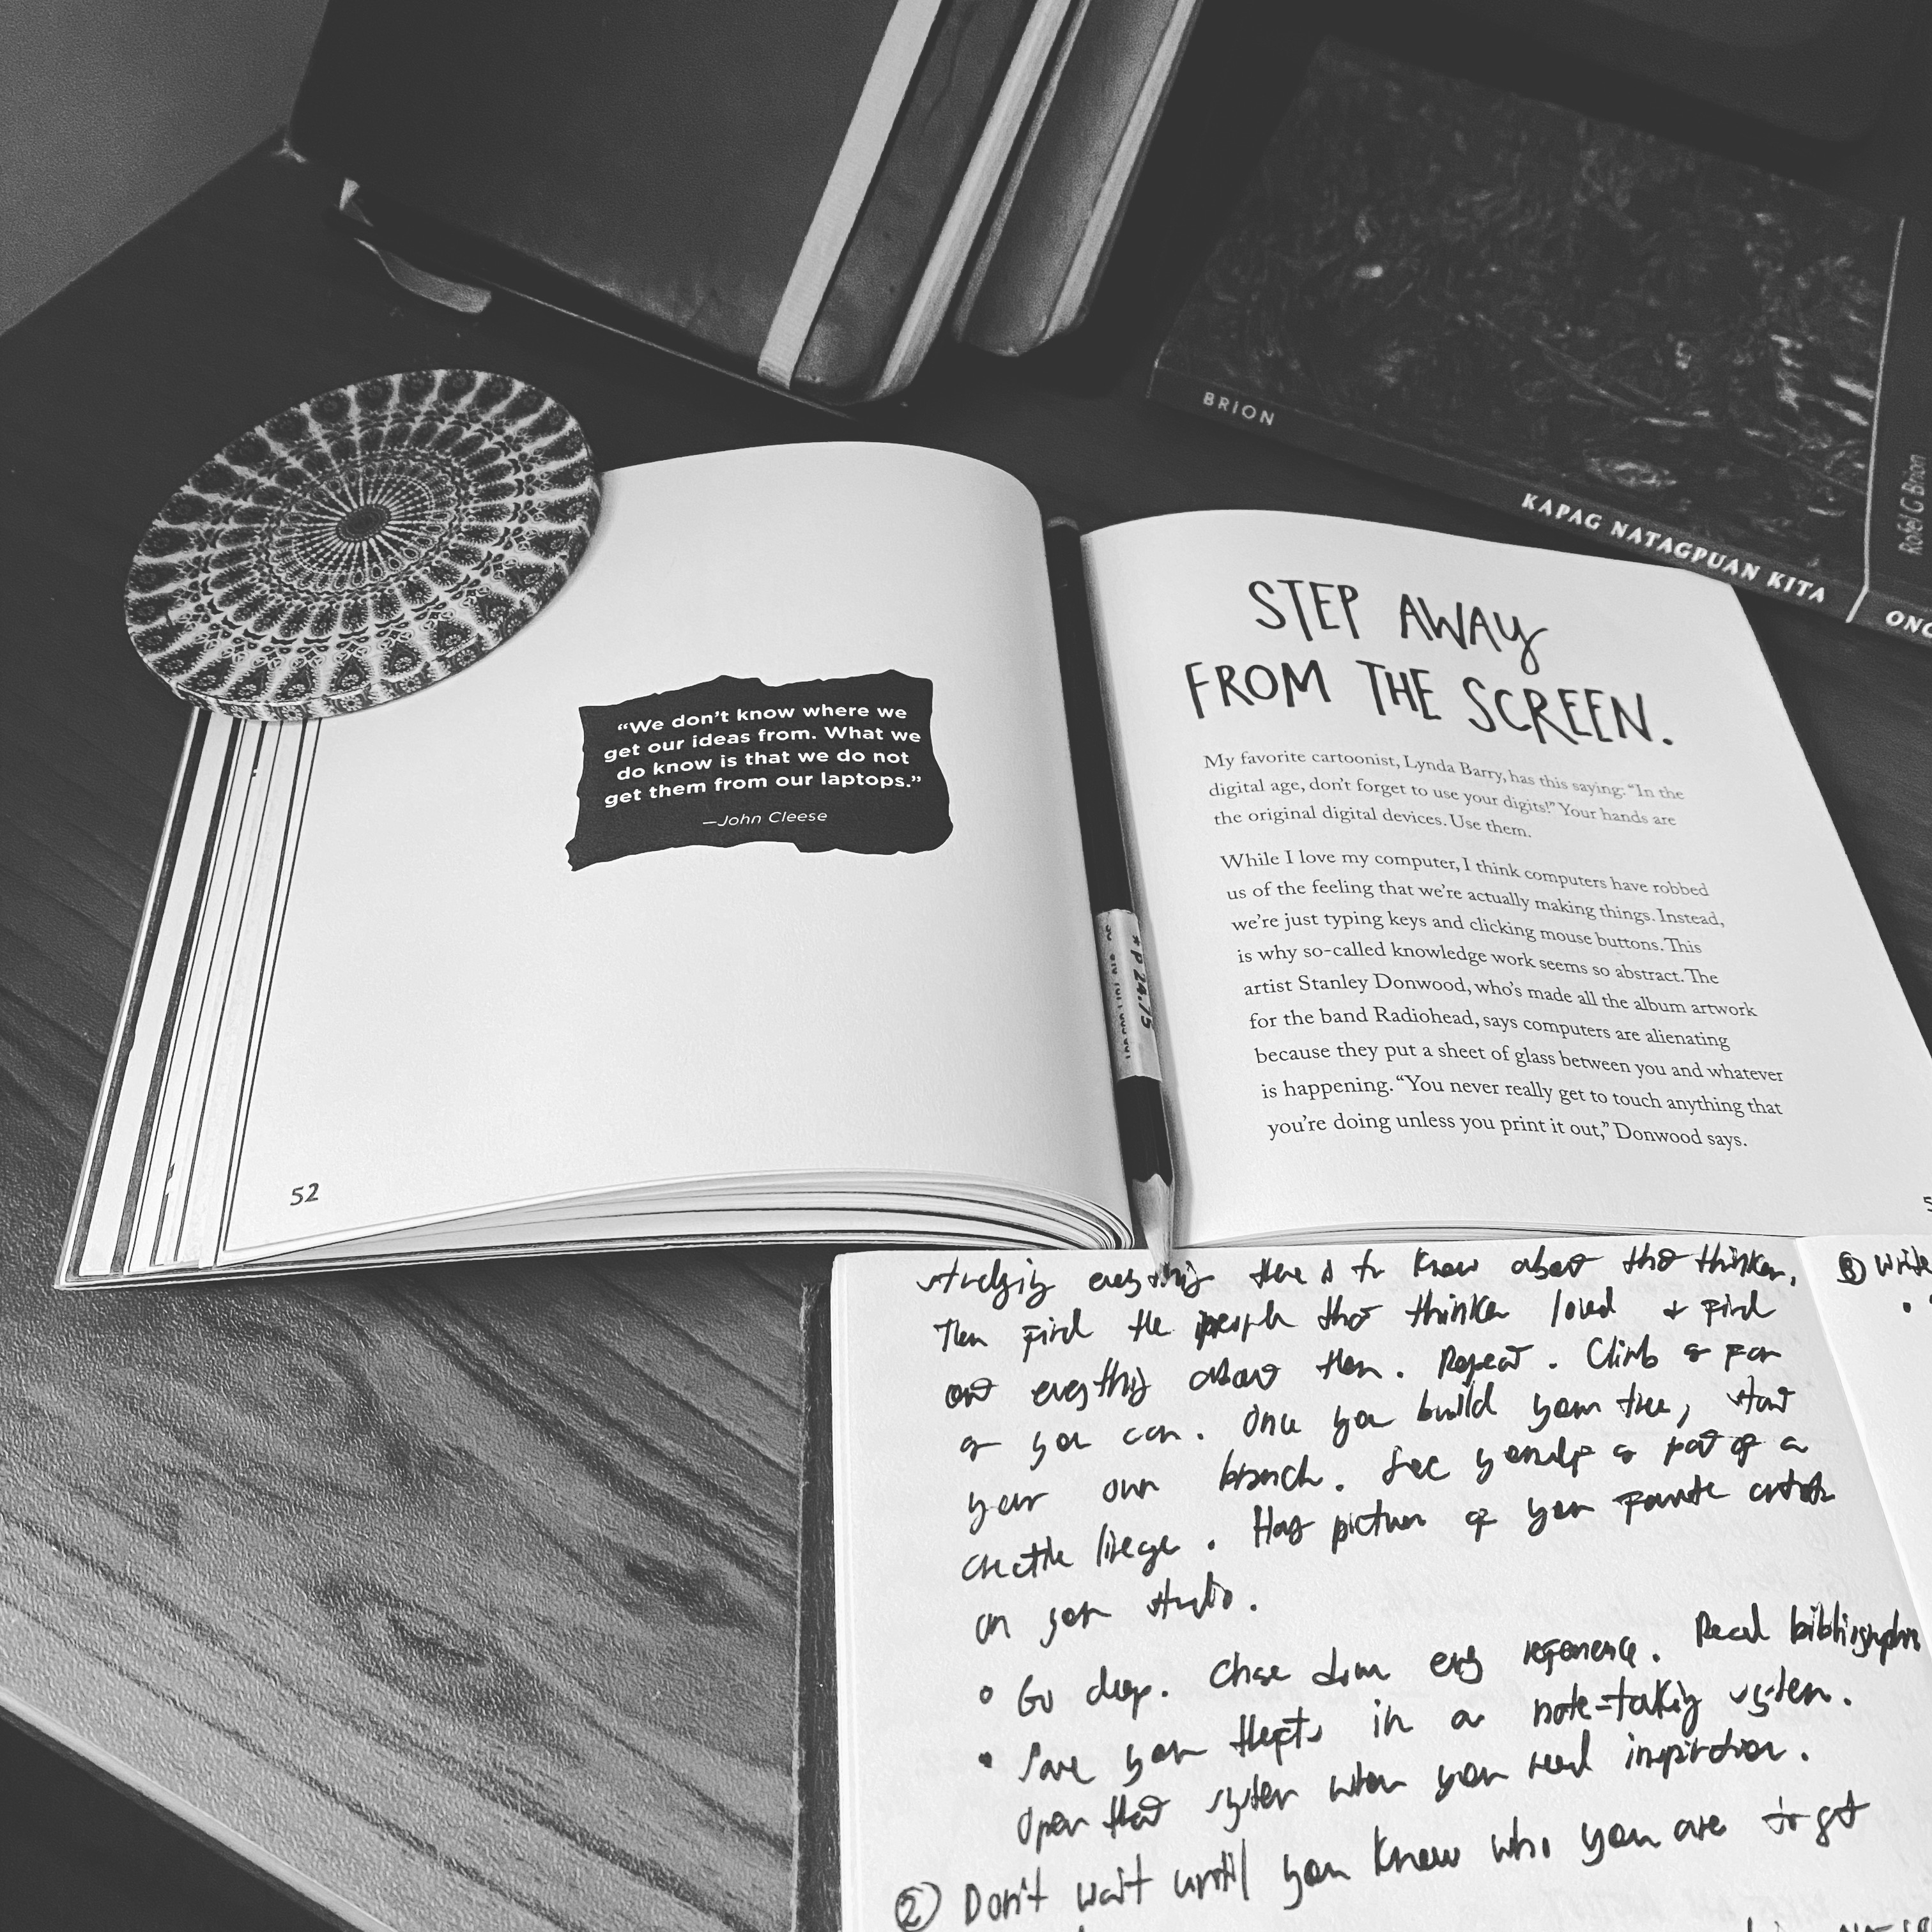 BRION
KAPAG NATAGPUAN KITA
Rofel G Brion
“We don’t know where we
get our ideas from. What we
do know is that we do not
get them from our laptops.”
—John Cleese
52
STEP AWAY
FROM THE SCREEN.
My favorite cartoonist, Lynda Barry, has this saying: “In the
digital age, don’t forget to use your digits!” Your hands are
the original digital devices. Use them.
While I love my computer, I think computers have robbed
us of the feeling that we’re actually making things. Instead,
we’re just typing keys and clicking mouse buttons. This
is why so-called knowledge work seems so abstract. The
artist Stanley Donwood, who’s made all the album artwork
for the band Radiohead, says computers are alienating
because they put a sheet of glass between you and whatever
is happening. “You never really get to touch anything that
you’re doing unless you print it out,” Donwood says.
# P 24.75
studying everything there is to know about that thinker.
Then find the people that thinker loved & find
out everything about them. Repeat. Climb as far
as you can. Once you build your tree, start
your own branch. See yourself as part of a
creative lineage. Hang pictures of your favorite artists
on your studio.
• Go deep. Chase down every reference. Read bibliographies
• Save your thefts in a note-taking system.
Open that system when you need inspiration.
② Don't wait until you know who you are to get
③ Write